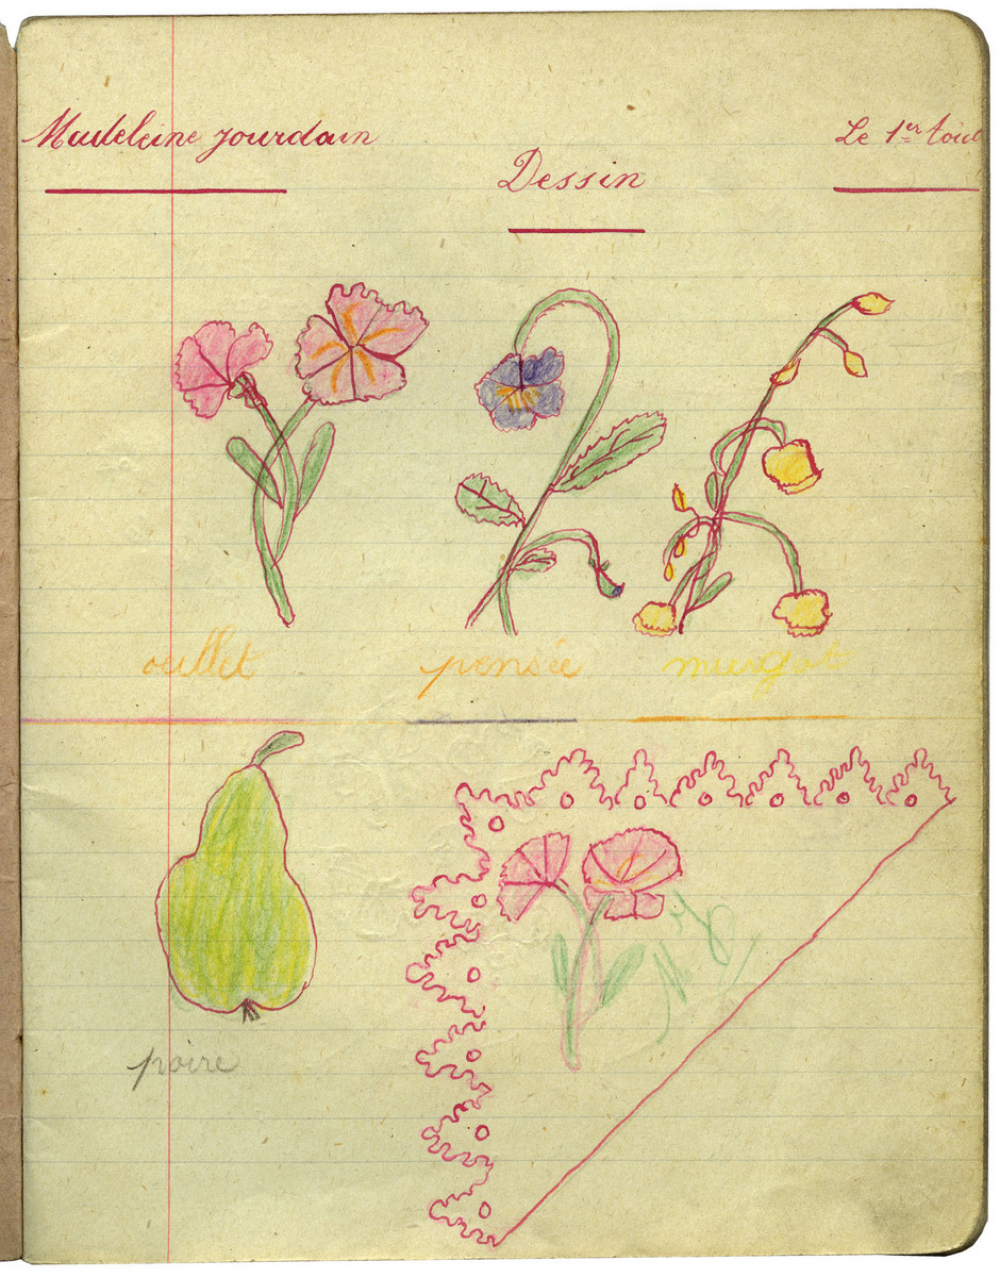 Madeleine Jourdain
Le 1er Août
Dessin
oeillet
pensée
muguet
poire
M. J